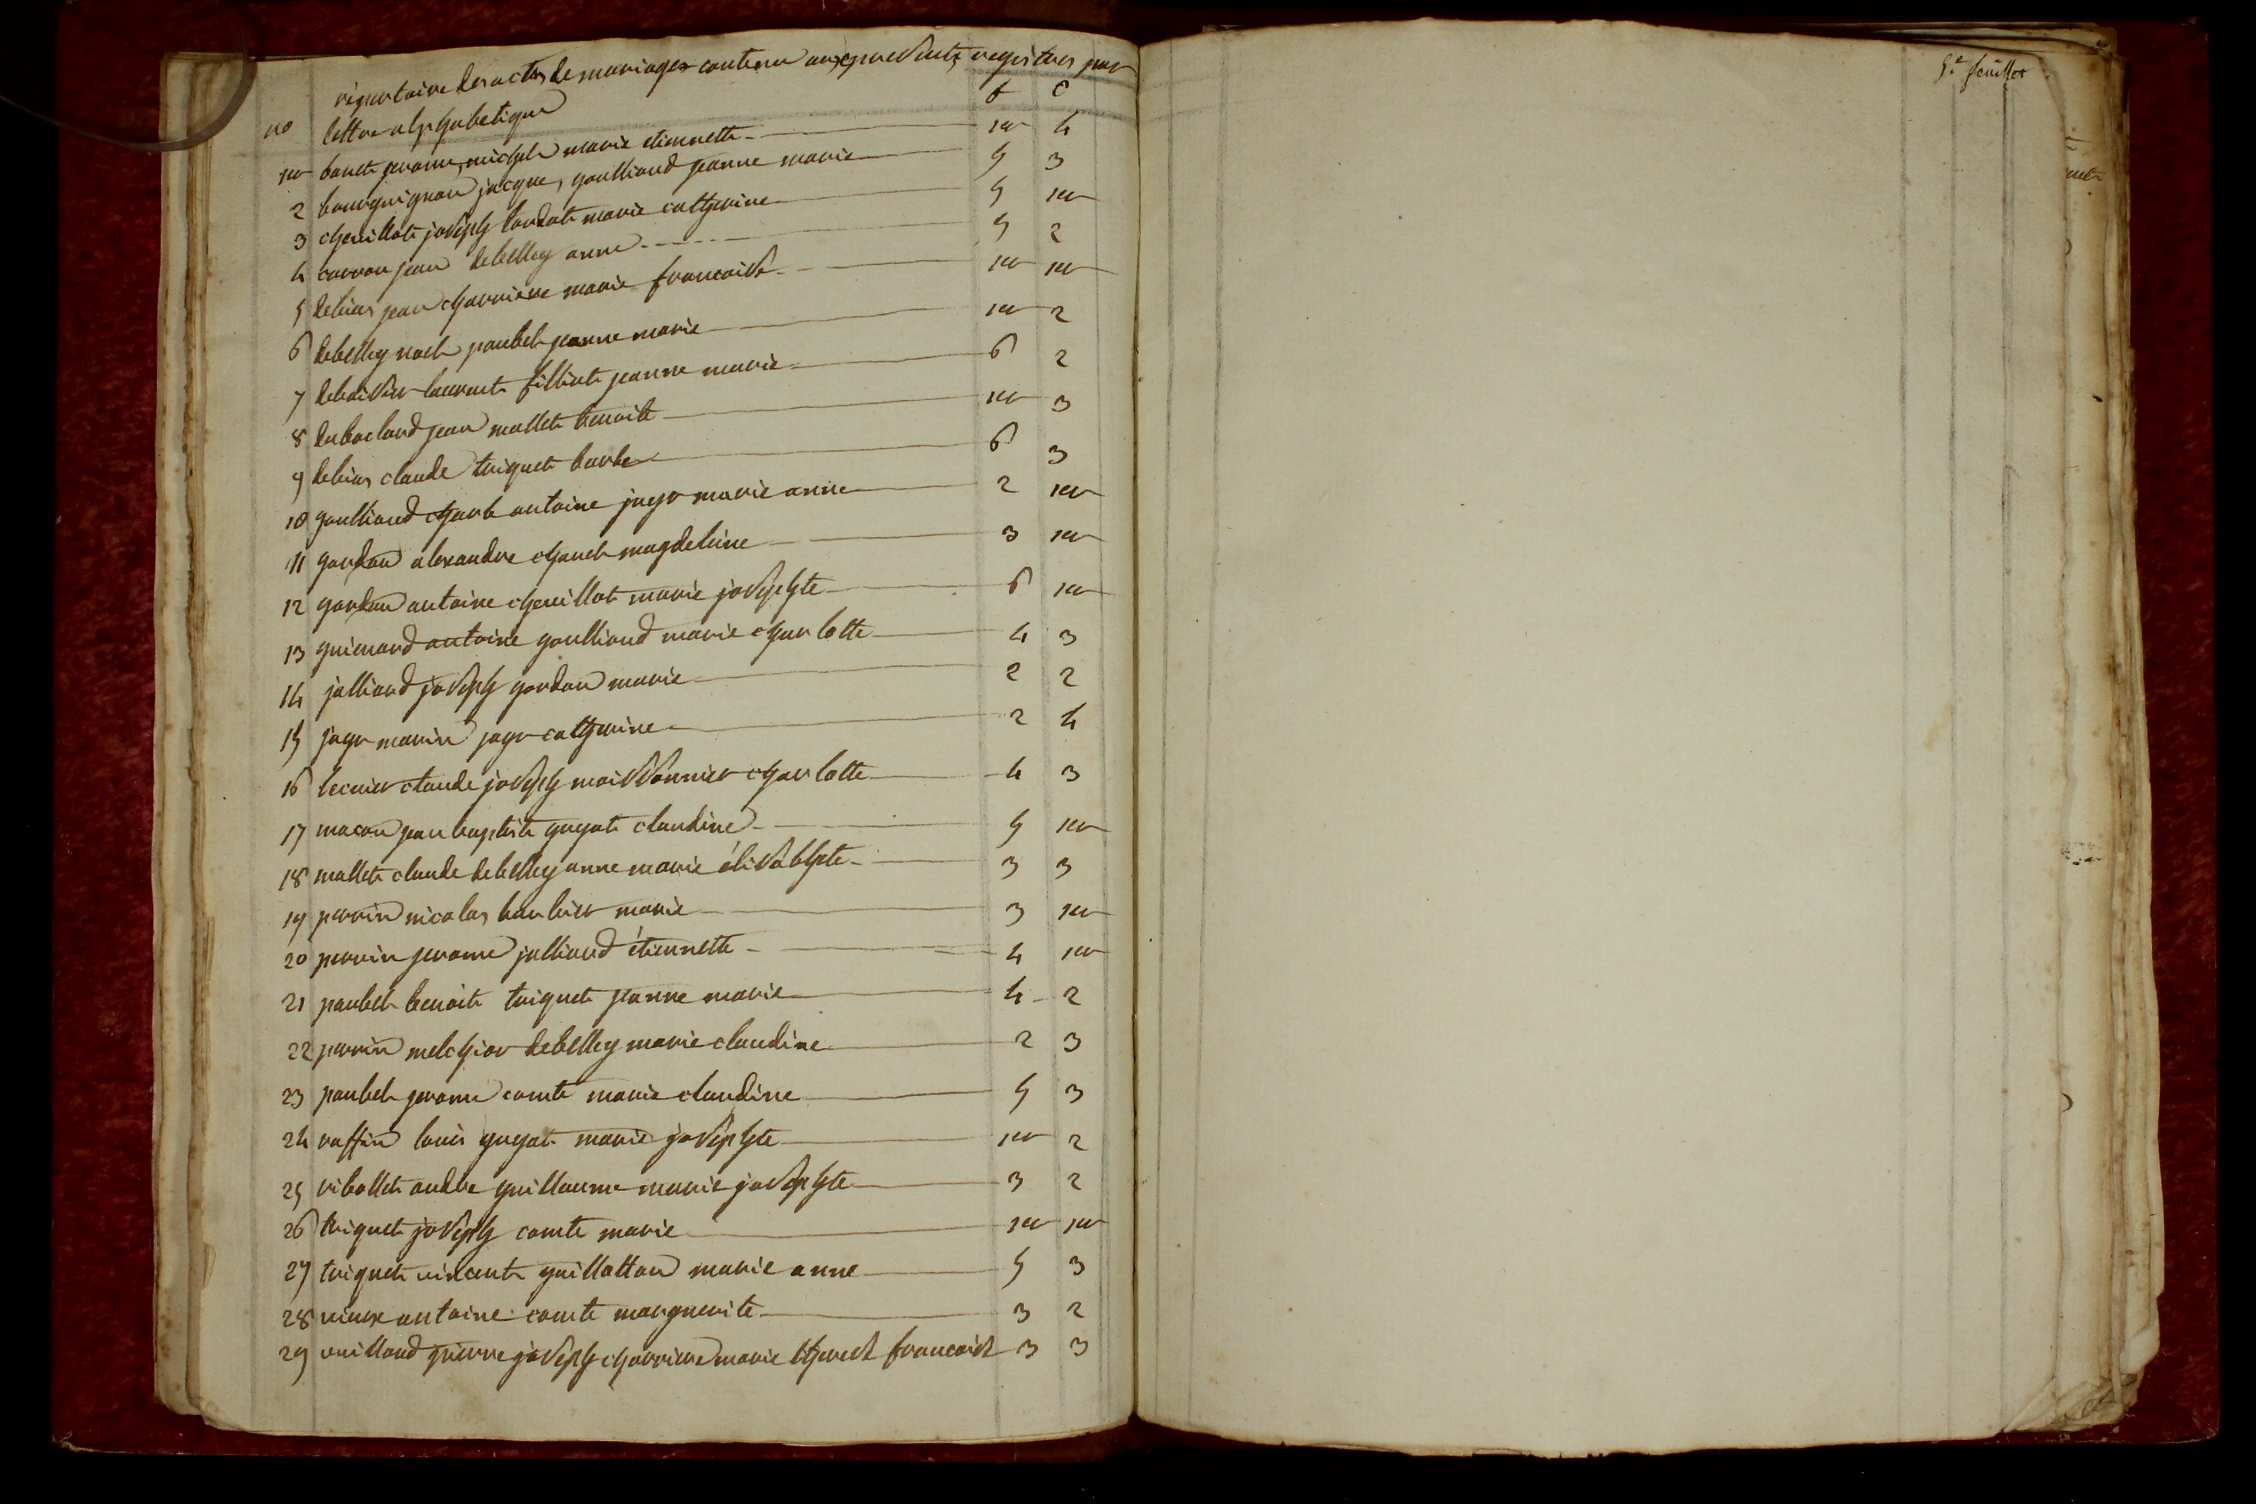 répertoire des actes de mariages contenu aux présents registres par
no lettre alphabetique f c
1er bonet jerome, michel marie etiennette 1er 4
2 bourguignon jacque, goullioud jeanne marie 5 3
3 chevillot joseph bordat marie catherine 5 1er
4 carron jean debelley anne 5 2
5 debias jean charriere marie francoise 1er 1er
6 debelley noel paubel jeanne marie 1er 2
7 deboissier laurent filliat jeanne marie 6 2
8 dubocloud jean mallet benoite 1er 3
9 debias claude triquet barbe 6 3
10 goullioud charle antoine jayr marie anne 2 1er
11 gordon alexandre chanel magdeleine 3 1er
12 gordon antoine chevillot marie josephte 6 1er
13 guienard antoine goullioud marie charlotte 4 3
14 jalliard joseph gordon marie 2 2
15 jayr marin jayr catherine 2 4
16 lecuier claude joseph moissonnier charlotte 4 3
17 macon jean baptiste guyot claudine 5 1er
18 mallet claude debelley anne marie élisabhte 3 3
19 perrin nicolas barbier marie 3 1er
20 perrin jerome jalliard étiennette 4 1er
21 paubel benoit triquet jeanne marie 4 2
22 perrin melchior debelley marie claudine 2 3
23 paubel jerome comte marie claudine 5 3
24 raffin louis guyot marie josephte 1er 2
25 ribollet andre guillaume marie josephte 3 2
26 triquet joseph comte marie 1er 1er
27 triquet vincent guillotton marie anne 5 3
28 vieux antoine comte marguerite 3 2
29 vuilloud pierre joseph charriere marie therese francoise 3 3
5.e feuillet